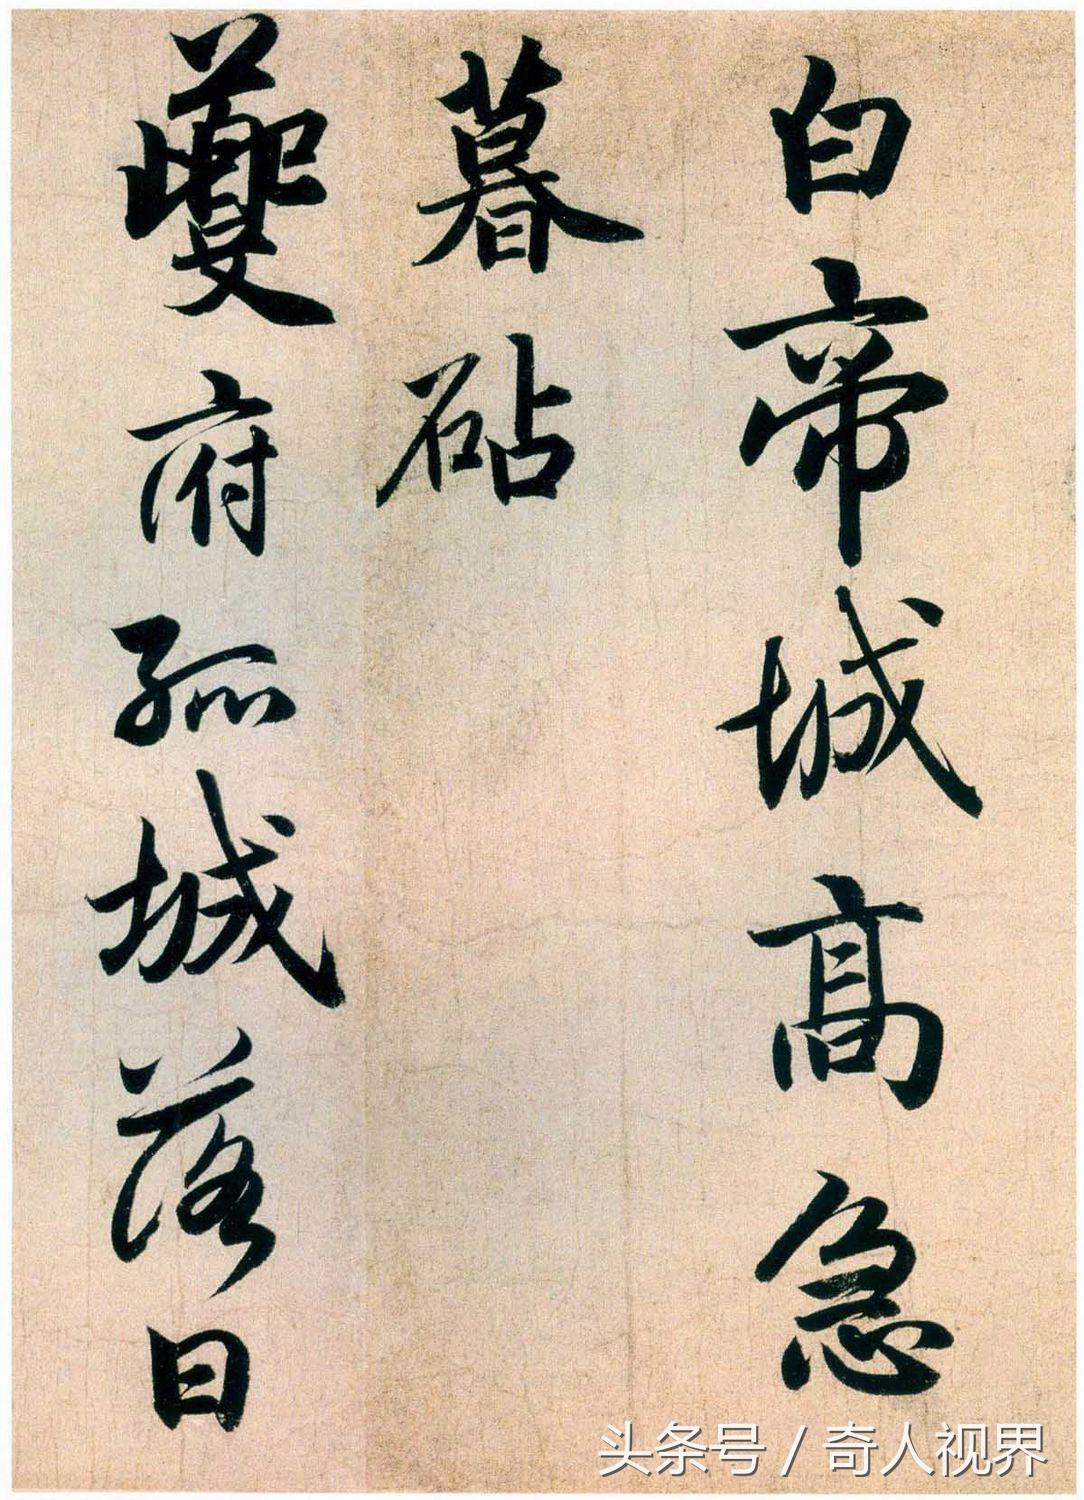 白帝城高急
暮砧
夔府孤城落日
头条号 / 奇人视界